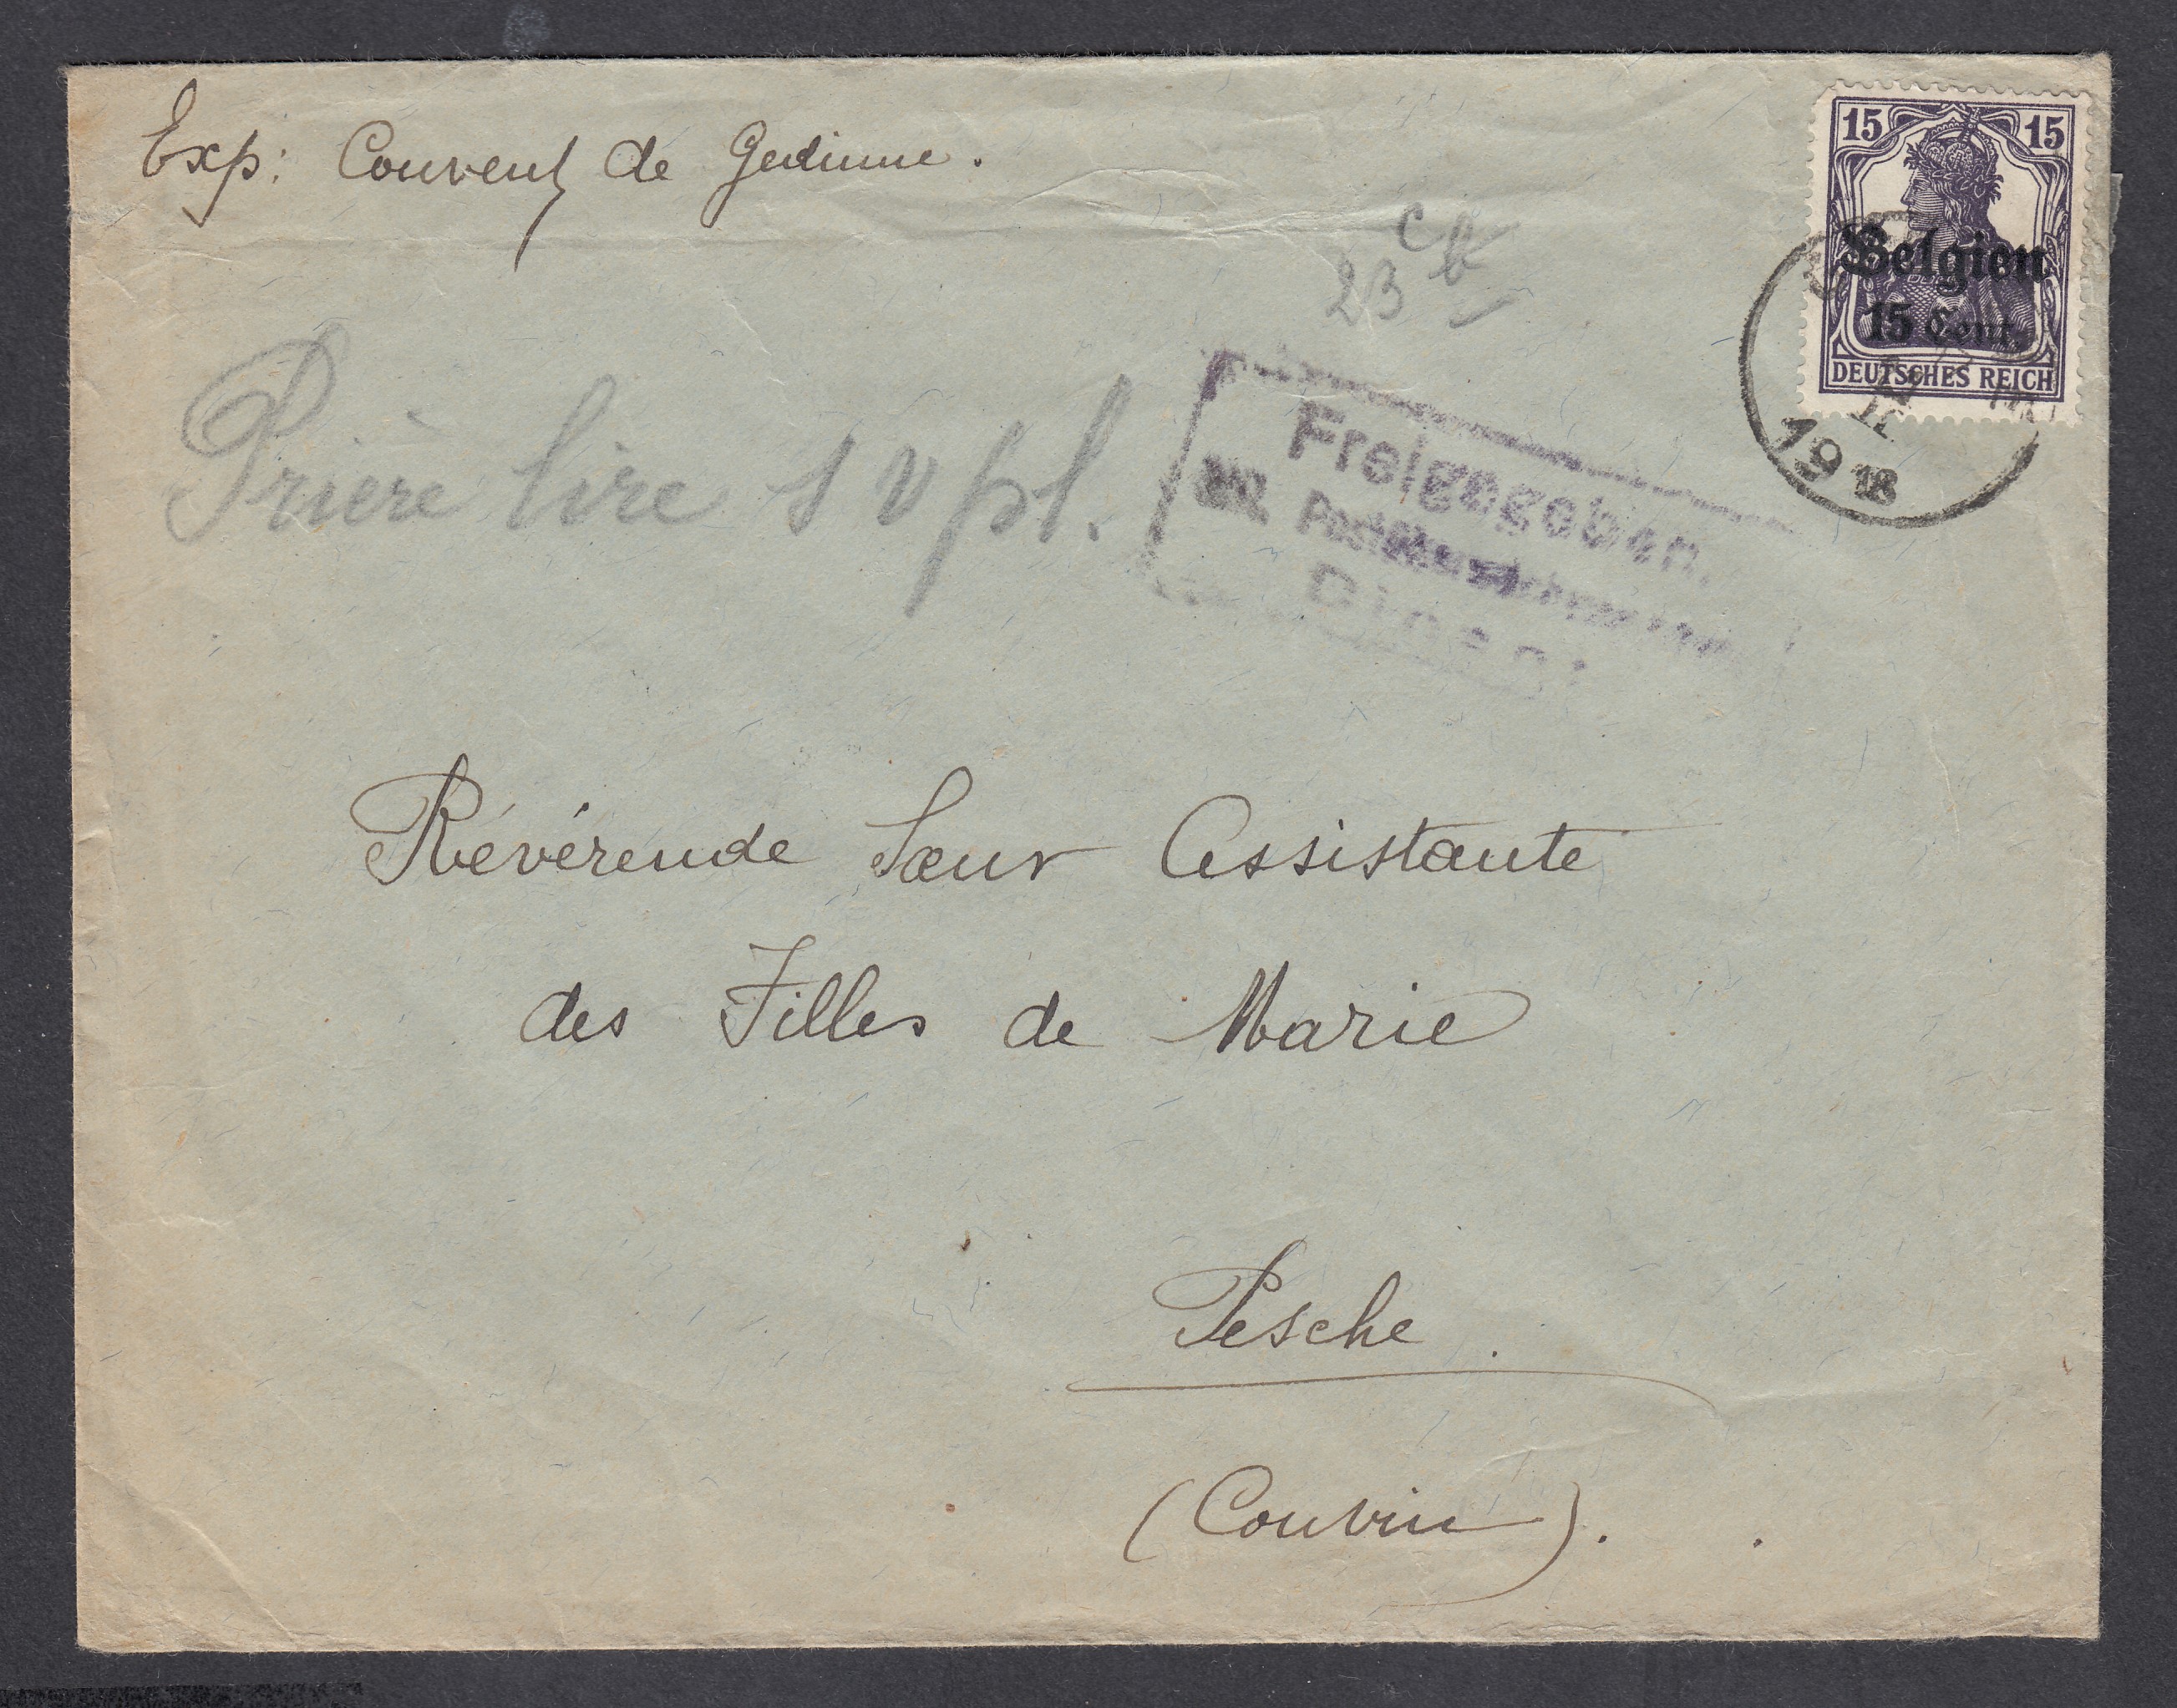 Exp: Couvent de Gedinne.
15 15
Belgien
15 Cent.
DEUTSCHES REICH
1918
23
Prière lire s v pl.
Freigegeben.
Dinant
Révérende Sœur Assistante
des Filles de Marie
Pesche.
(Couvin).